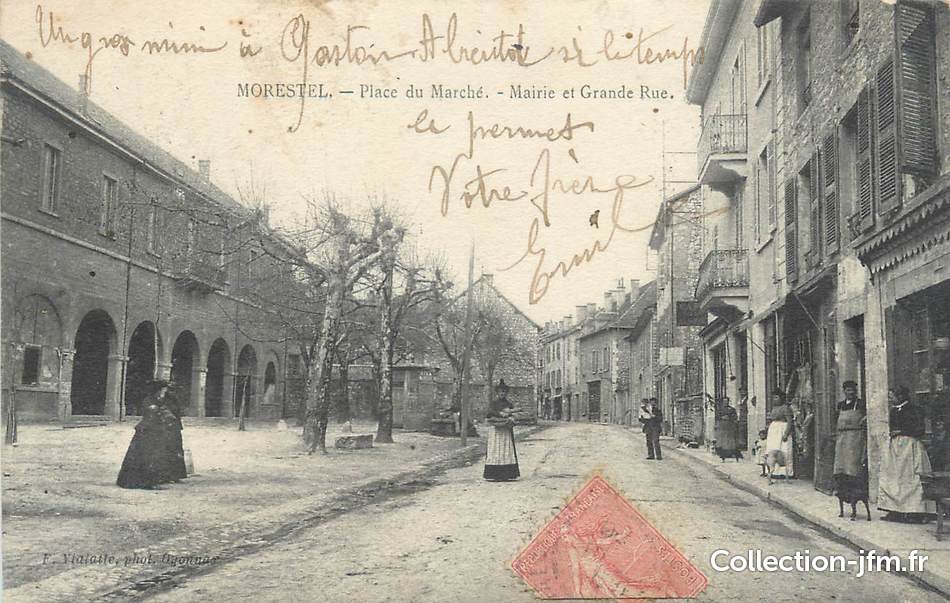 Un gros mimi à Gaston Abrientot si le temps
MORESTEL. — Place du Marché. - Mairie et Grande Rue.
le permet
Votre frère
Emil
F. Vialatte, phot. Oyonnax
Collection-jfm.fr